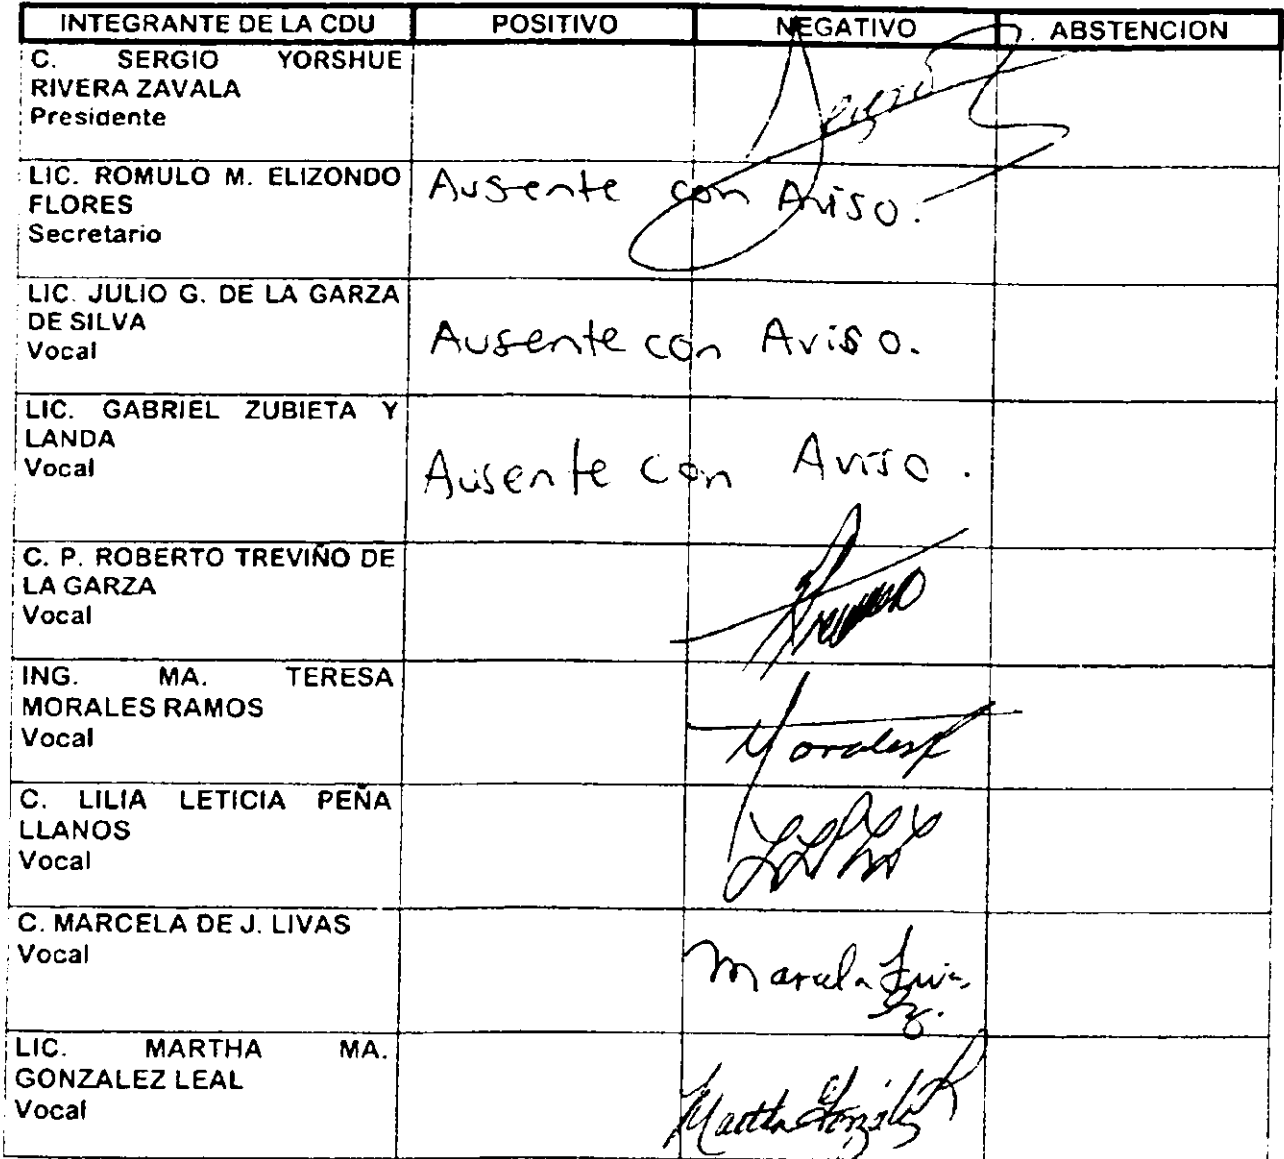 INTEGRANTE DE LA CDU POSITIVO NEGATIVO ABSTENCION
C. SERGIO YORSHUE
RIVERA ZAVALA
Presidente
LIC. ROMULO M. ELIZONDO
FLORES
Secretario
Ausente con Aviso.
LIC. JULIO G. DE LA GARZA
DE SILVA
Vocal
Ausente con Aviso.
LIC. GABRIEL ZUBIETA Y
LANDA
Vocal
Ausente con Aviso.
C. P. ROBERTO TREVIÑO DE
LA GARZA
Vocal
ING. MA. TERESA
MORALES RAMOS
Vocal
C. LILIA LETICIA PEÑA
LLANOS
Vocal
C. MARCELA DE J. LIVAS
Vocal
Marcela Livas
LIC. MARTHA MA.
GONZALEZ LEAL
Vocal
Martha González